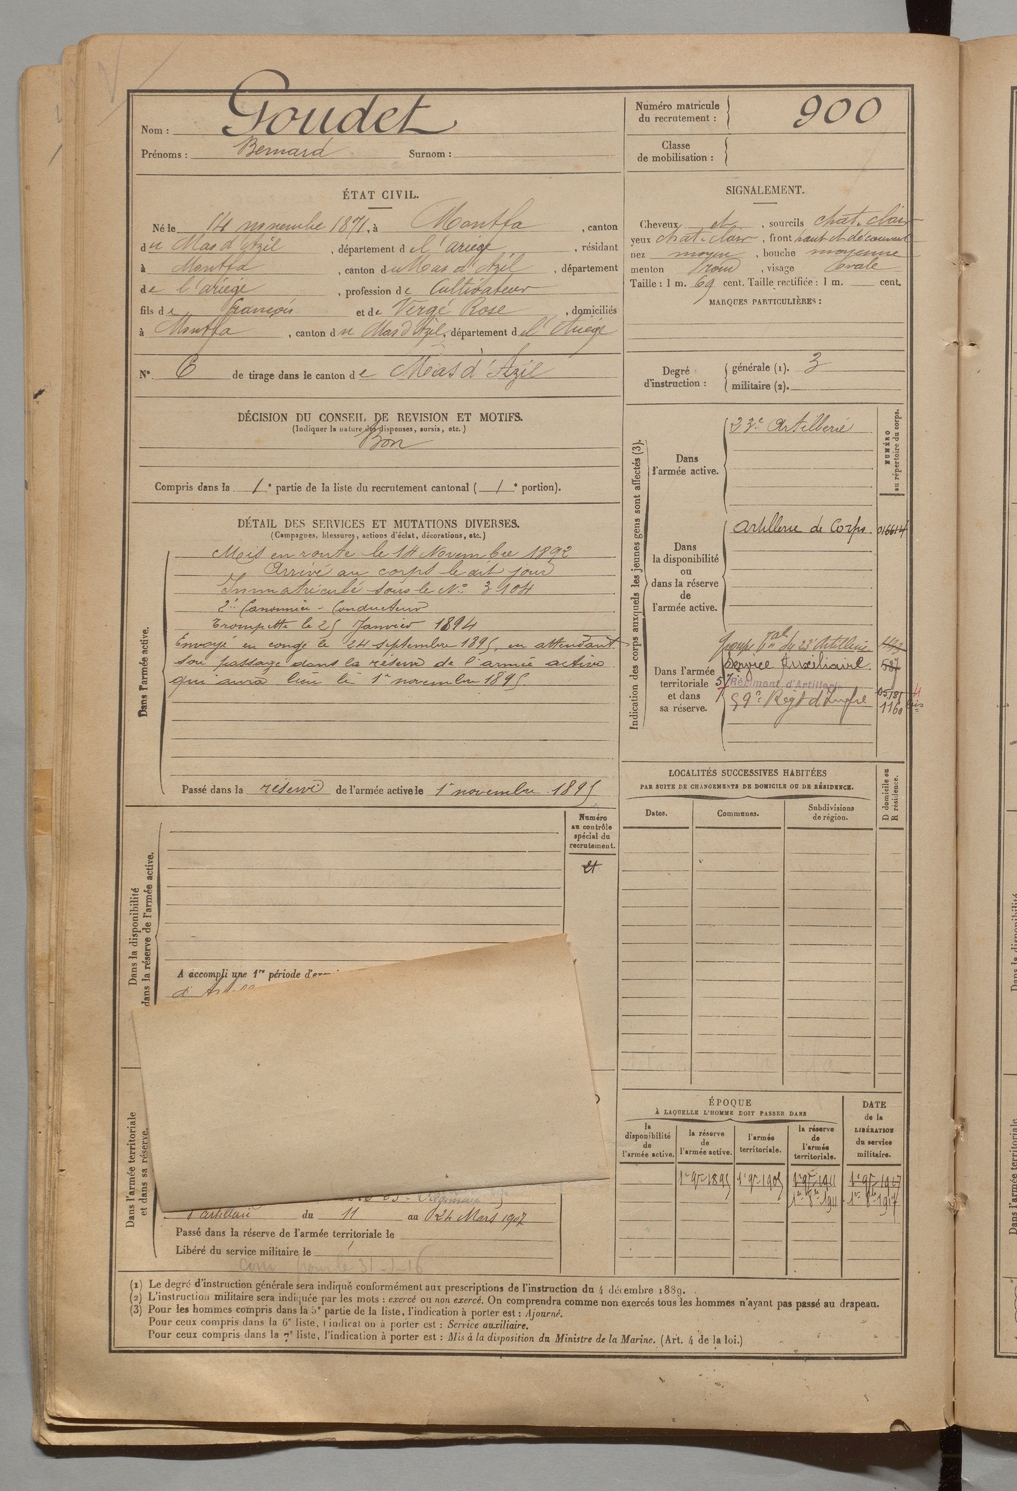 Nom : Goudet
Prénoms : Bernard Surnom :
Numéro matricule du recrutement : 900
Classe de mobilisation :
ÉTAT CIVIL.
Né le 14 novembre 1871, à Montfa, canton
du Mas d'Azil, département de l'ariège, résidant
à Montfa, canton du Mas d'Azil, département
de l'ariège, profession de Cultivateur
fils de françois et de Vergé Rose, domiciliés
à Montfa, canton du Mas d'Azil, département de l'Ariège
N° 6 de tirage dans le canton de Mas d'Azil
SIGNALEMENT.
Cheveux et, sourcils chat. clair
yeux chat. clair, front haut et découvert
nez moyen, bouche moyenne
menton rond, visage ovale
Taille : 1 m. 69 cent. Taille rectifiée : 1 m. cent.
MARQUES PARTICULIÈRES :
Degré d'instruction : générale (1). 3
militaire (2).
DÉCISION DU CONSEIL DE REVISION ET MOTIFS.
(Indiquer la nature des dispenses, sursis, etc.)
Bon
Compris dans la 1e partie de la liste du recrutement cantonal (1e portion).
DÉTAIL DES SERVICES ET MUTATIONS DIVERSES.
(Campagnes, blessures, actions d'éclat, décorations, etc.)
Dans l'armée active.
Mis en route le 14 Novembre 1892
Arrivé au corps le dit jour
Immatriculé sous le N° 3104
2e Canonnier - Conducteur
Trompette le 25 Janvier 1894
Envoyé en congé le 24 septembre 1895, en attendant
son passage dans la réserve de l'armée active
qui aura lieu le 1er novembre 1895
Passé dans la réserve de l'armée active le 1er novembre 1895
Indication des corps auxquels les jeunes gens sont affectés (3).
NUMÉRO au répertoire du corps.
Dans l'armée active.
23e Artillerie
Dans la disponibilité ou dans la réserve de l'armée active.
Artillerie de Corps
Dans l'armée territoriale et dans sa réserve.
Groupe tal du 23e Artillerie
Service Auxiliaire. 587
57 Régiment d'Artillerie
59e Régt d'Infie 1160
LOCALITÉS SUCCESSIVES HABITÉES
PAR SUITE DE CHANGEMENTS DE DOMICILE OU DE RÉSIDENCE.
D domicile ou R résidence.
Dates.
Communes.
Subdivisions de région.
Numéro au contrôle spécial du recrutement.
Dans la disponibilité ou dans la réserve de l'armée active.
A accompli une 1re période d'
Dans l'armée territoriale et dans sa réserve.
d'artillerie du 11 au 24 Mars 1907
Passé dans la réserve de l'armée territoriale le
Libéré du service militaire le
ÉPOQUE
À LAQUELLE L'HOMME DOIT PASSER DANS
DATE de la LIBÉRATION du service militaire.
la disponibilité de l'armée active.
la réserve de l'armée active.
l'armée territoriale.
la réserve de l'armée territoriale.
1er 9bre 1895 1er 9bre 1905 1er 9bre 1911 1er 9bre 1917
1er 8bre 1911 1er 8bre 1917
(1) Le degré d'instruction générale sera indiqué conformément aux prescriptions de l'instruction du 4 décembre 1889.
(2) L'instruction militaire sera indiquée par les mots : exercé ou non exercé. On comprendra comme non exercés tous les hommes n'ayant pas passé au drapeau.
(3) Pour les hommes compris dans la 5e partie de la liste, l'indication à porter est : Ajourné.
Pour ceux compris dans la 6e liste, l'indication à porter est : Service auxiliaire.
Pour ceux compris dans la 7e liste, l'indication à porter est : Mis à la disposition du Ministre de la Marine. (Art. 4 de la loi.)